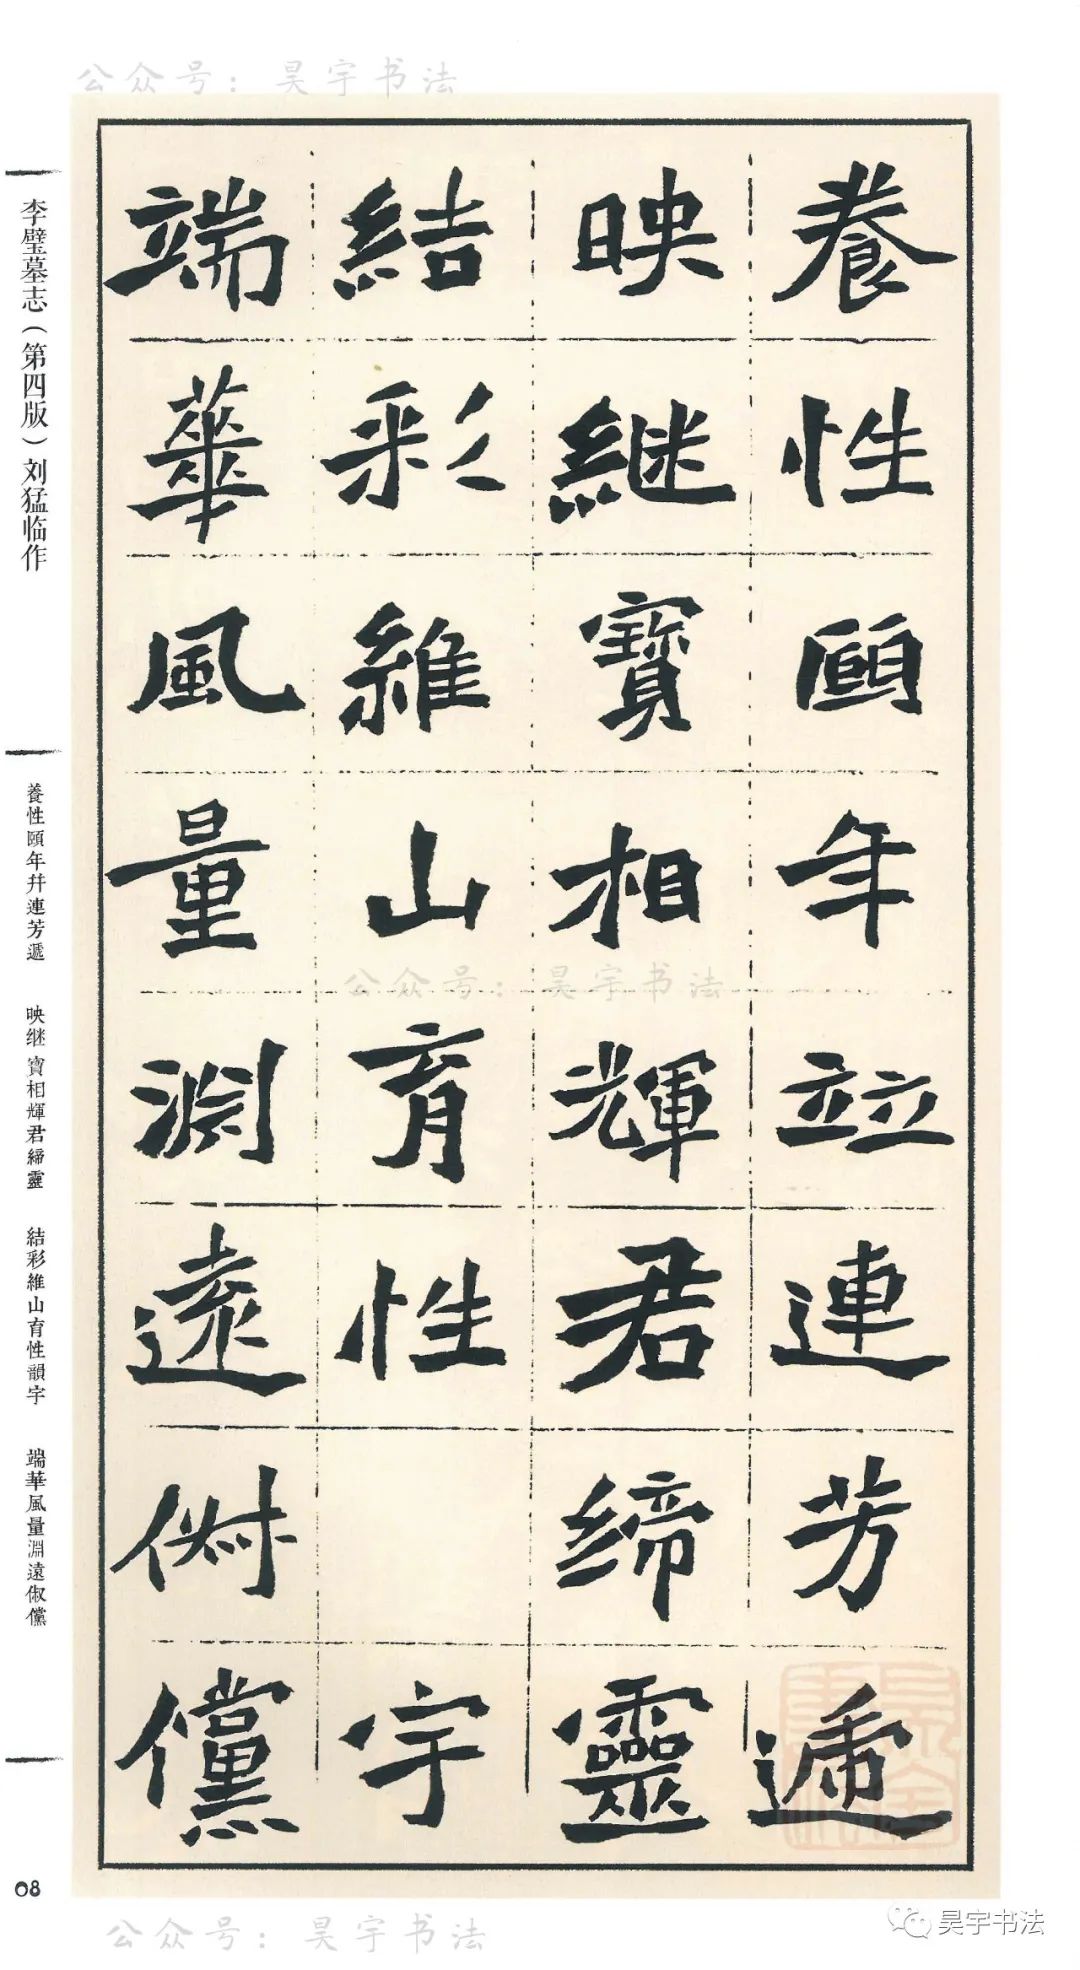 公众号：昊宇书法
養性頤年竝連芳遞
映継寶相輝君締靈
結彩維山育性宇
端華風量淵遠俶儻
李璧墓志（第四版）刘猛临作
養性頤年幷連芳遞
映继寶相輝君締靈
結彩維山育性韻宇
端華風量淵遠俶儻
公众号：昊宇书法
08
公众号：昊宇书法
昊宇书法